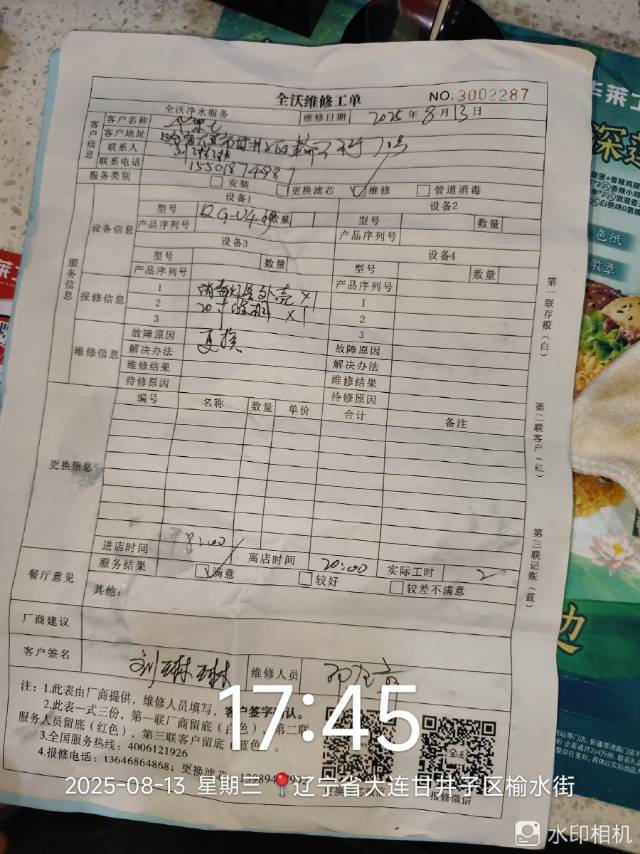 全沃维修工单
NO:3002287
全沃净水服务 维修日期 2025年8月13日
客户信息
客户名称 华莱士
客户地址
联系人 刘琳琳
联系电话 15501874987
服务类别 安装 更换滤芯 维修 管道消毒
服务信息
设备信息
设备1 设备2
型号 数量 型号 数量
产品序列号 产品序列号
设备3 设备4
型号 数量 型号 数量
产品序列号 产品序列号
报修信息
1 外壳 x1 1
2 20寸 x1 2
3 3
维修信息
故障原因 更换 故障原因
解决办法 解决办法
维修结果 维修结果
待修原因 待修原因
更换信息
编号 名称 数量 单价 合计 备注
进店时间 18:00 离店时间 20:00 实际工时 2
餐厅意见
服务结果 满意 较好 较差不满意
其他:
厂商建议
客户签名 刘琳琳 维修人员
注:1.此表由厂商提供,维修人员填写,客户签字确认。
2.此表一式三份,第一联厂商留底(白色),第二联
服务人员留底(红色),第三联客户留底(蓝色)。
3.全国服务热线:4006121926
4.报修电话:13646864868;更换滤
报修微信
第一联存根(白)
第二联客户(红)
第三联记账(蓝)
17:45
2025-08-13 星期三 辽宁省大连甘井子区榆水街
水印相机
华莱士